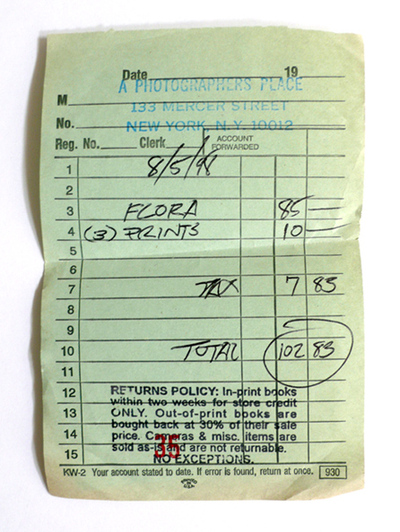 Date 19
A PHOTOGRAPHERS PLACE
M
133 MERCER STREET
No. NEW YORK, N.Y. 10012
Reg. No. Clerk ACCOUNT FORWARDED
1 8/5/98
2
3 FLORA 85 —
4 (3) PRINTS 10 —
5
6
7 TAX 7 83
8
9
10 TOTAL 102 83
11
12 RETURNS POLICY: In-print books
within two weeks for store credit
13 ONLY. Out-of-print books are
bought back at 30% of their sale
14 price. Cameras & misc. items are
sold as-is and are not returnable.
15 NO EXCEPTIONS.
35
KW-2 Your account stated to date. If error is found, return at once. 930